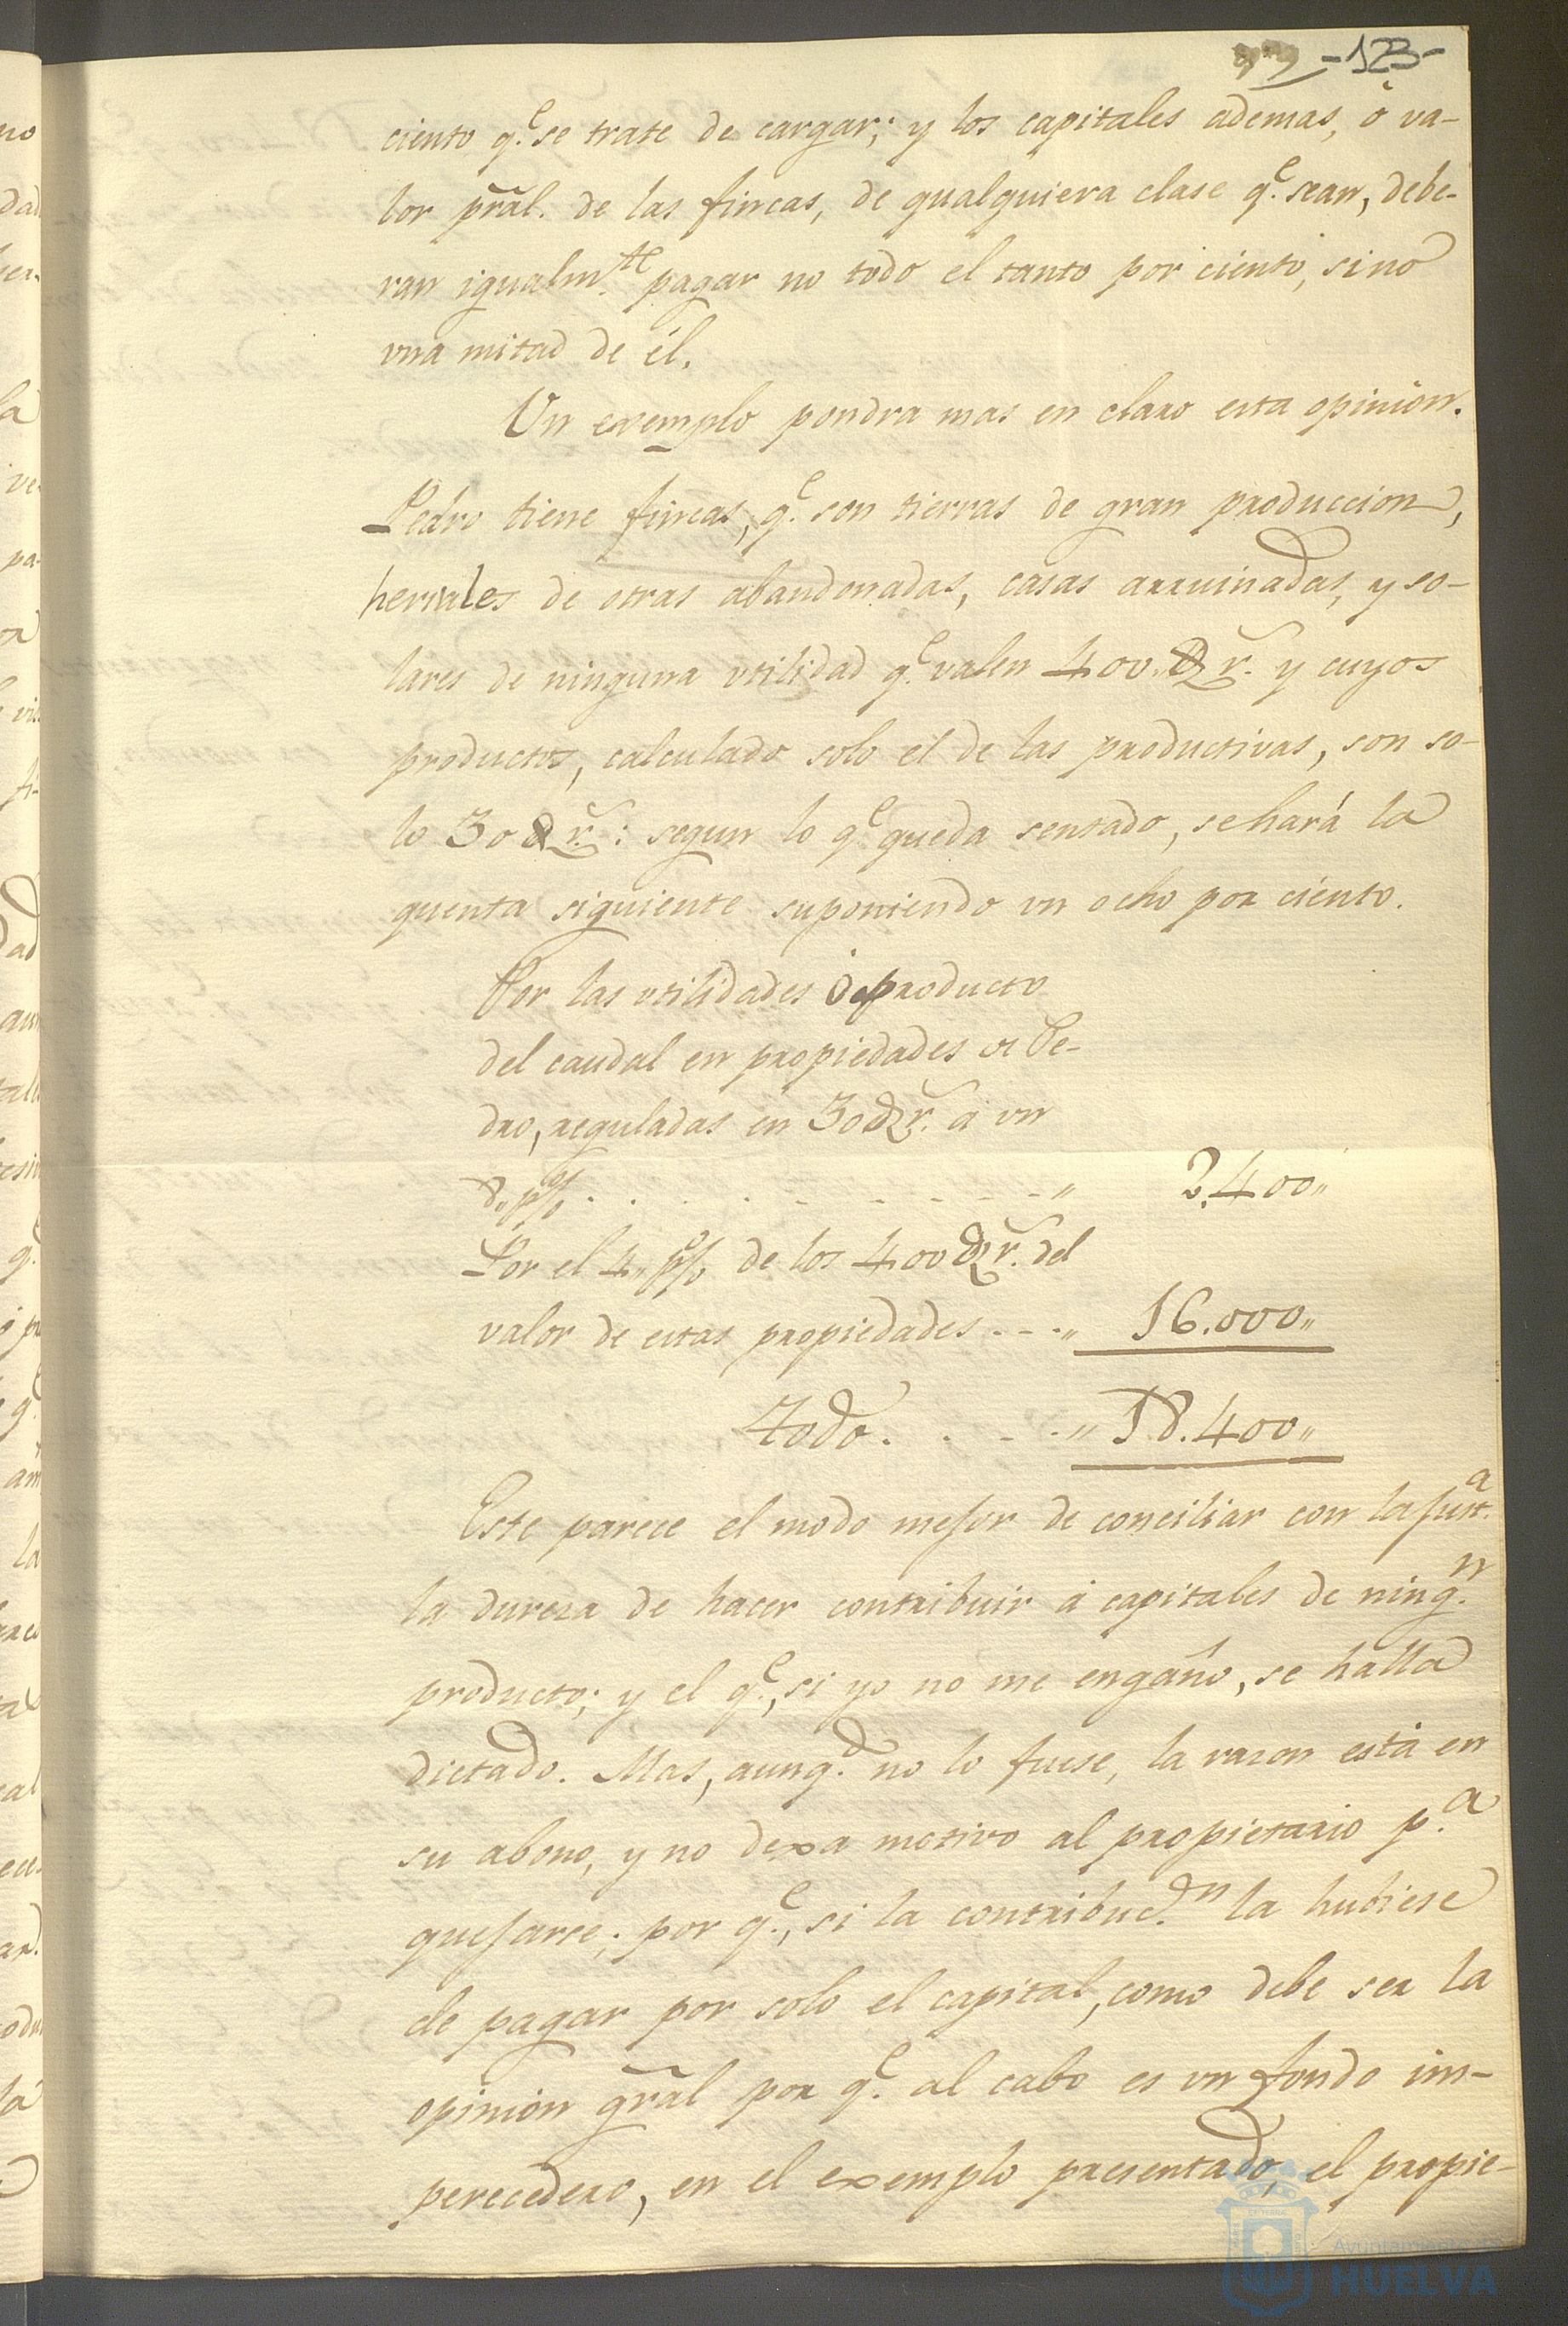 -123-
ciento q.e se trate de cargar; y los capitales ademas, ó va-
lor pral. de las fincas, de qualquiera clase q.e sean, debe-
ran igualm.te pagar no todo el tanto por ciento, sino
vna mitad de él.
Un exemplo pondra mas en claro esta opinion.
Pedro tiene fincas, q.e son tierras de gran produccion,
heriales de otras abandonadas, casas arruinadas, y so-
lares de ninguna vtilidad q.e valen 400.D r.s y cuyos
productos, calculado solo el de las productivas, son so-
lo 30 D r.s: segun lo q.e queda sentado, se hará la
quenta siguiente suponiendo vn ocho por ciento.
Por las vtilidades ó producto
del caudal en propiedades de Pe-
dro, reguladas en 30 D r.s á vn
8. p% . . . . . . . . . . " 2.400"
Por el 4. p% de los 400 D r.s del
valor de estas propiedades . - . " 16.000"
Todo . . - . " 18.400"
Este parece el modo mejor de conciliar con la just.a
la dureza de hacer contribuir á capitales de ning.n
producto; y el q.e, si yo no me engaño, se halla
dictado. Mas, aunq.e no lo fuese, la razon está en
su abono, y no dexa motivo al propietario p.a
quejarse; por q.e, si la contribuc.on la hubiese
de pagar por solo el capital, como debe ser la
opinion gral por q.e al cabo es vn fondo im-
perecedero, en el exemplo presentado, el propie-
Ayuntamiento de
HUELVA